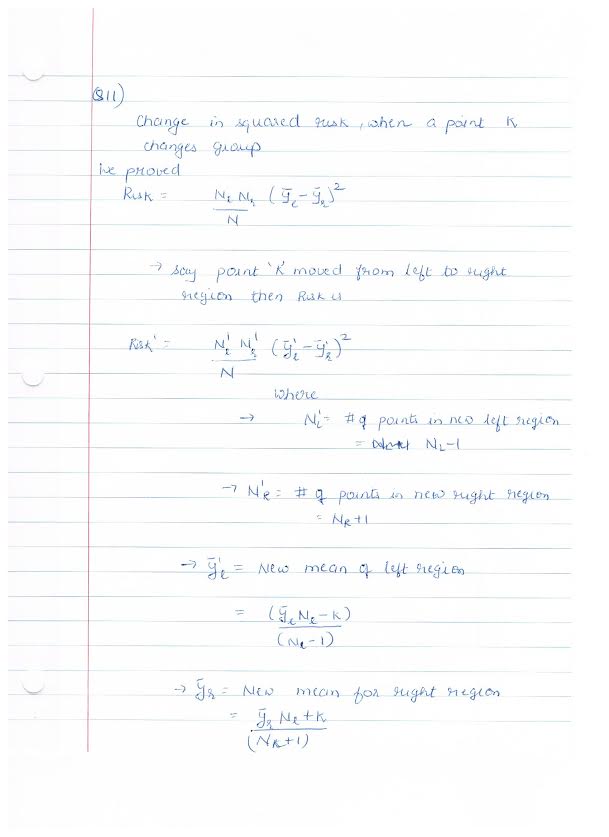 Q11)
Change in squared risk, when a point K
changes group
We proved
Risk = N_l N_r / N (ȳ_l - ȳ_r)²
→ say point 'K' moved from left to right
region then Risk is
Risk' = N'_l N'_r / N (ȳ'_l - ȳ'_r)²
where
→ N'_l = # of points in new left region
= N_L-1
→ N'_R = # of points in new right region
= N_R+1
→ ȳ'_l = New mean of left region
= (ȳ_l N_l - K) / (N_l - 1)
→ ȳ_r = New mean for right region
= ȳ_r N_l + K / (N_R+1)